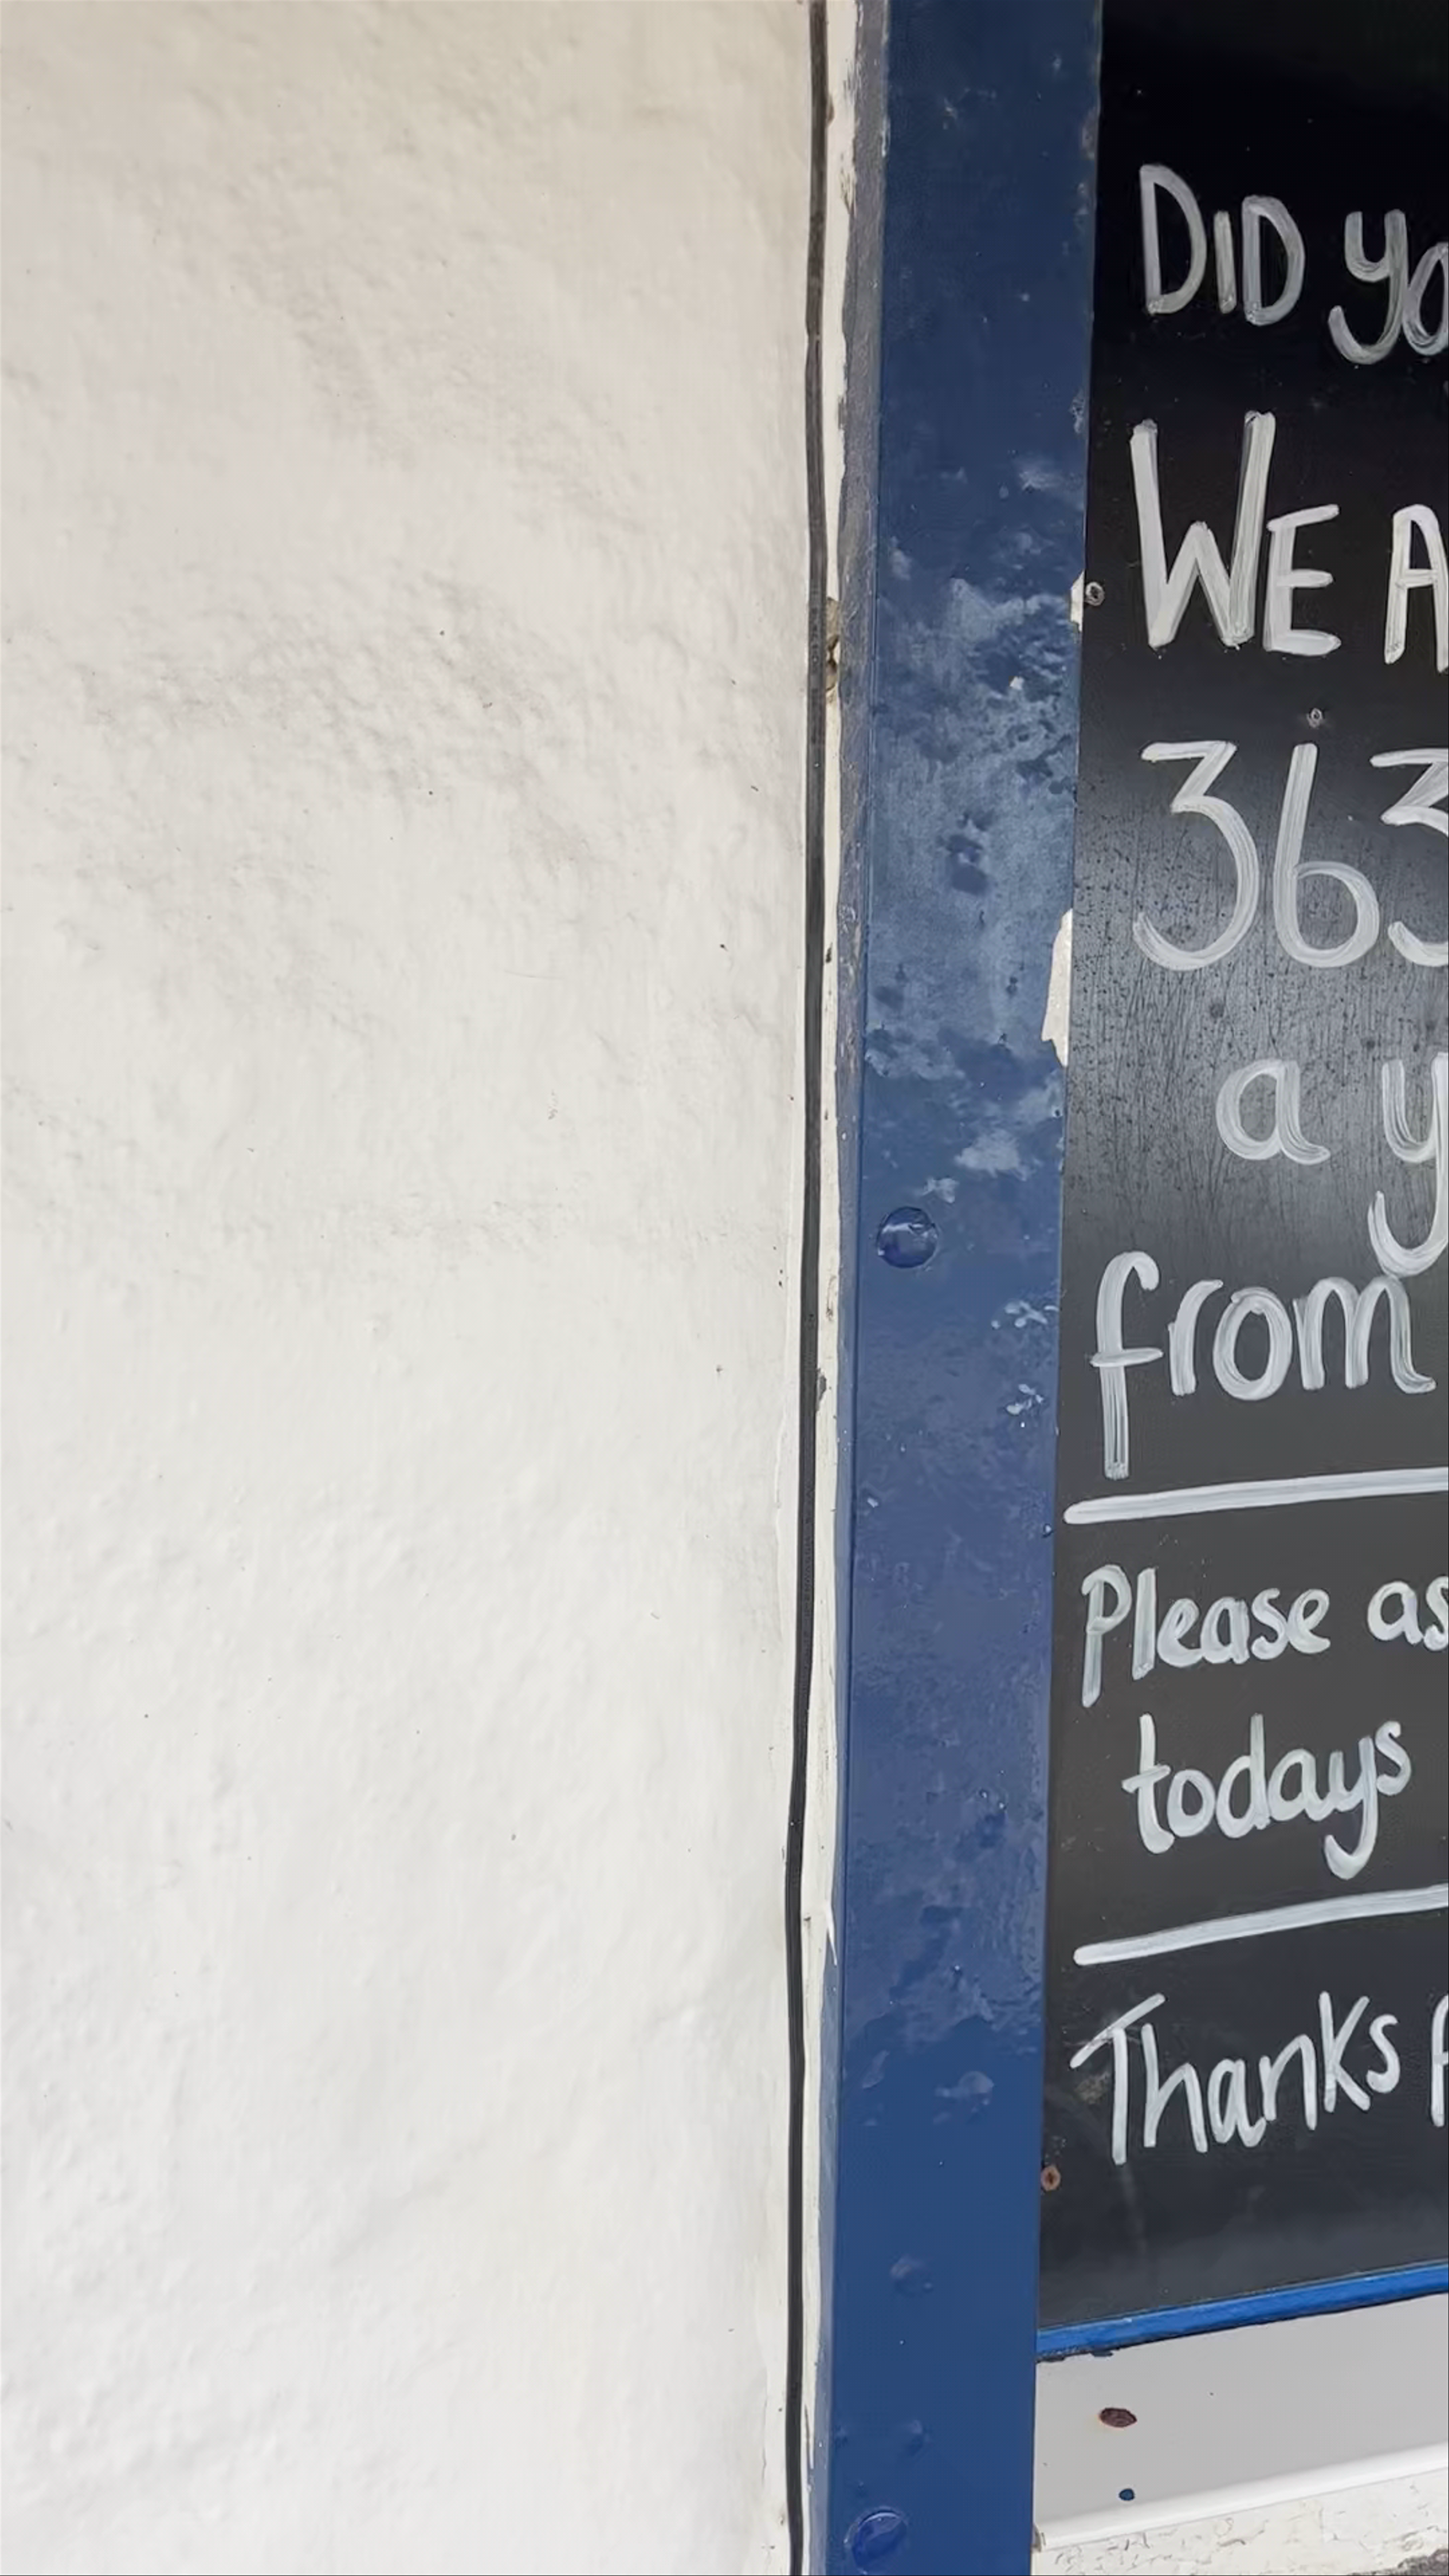 DID yo
WE A
363
a y
from
Please as
todays
Thanks f